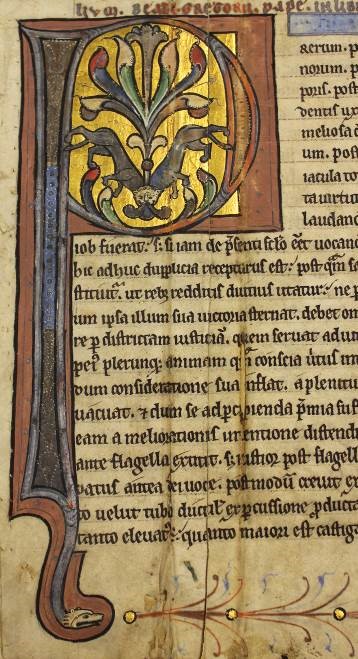 aerum. p
norum. p
poris. post
dentis ux
meliosa d
um. post
iacula to
ta uirtut
laudand
iob fuerat. s; si iam de p̄senti sclo eēt uocand
hic adhuc duplicia recepturus est: post qm̄ sa
ut reb; redditis diutius utatur: ne p
um ipsa illum sua uictoria sternat. debet om
re ꝑ districtam iusticiā. quem seruat adut
plerunq; animam qm̄ conscia uirtus
dum consideratione sua inflat. a plenitu
uacuat. ⁊ dum se ad ꝑcipienda p̄mia
eam a meliorationis intentione distendi
ante flagella extitit. s; iustior post flagell
antea ei uoce. postmodū creuit ex
uelut tubo ductili ex ꝑcussione ꝓducta
tanto eleuat quanto maiori est castiga